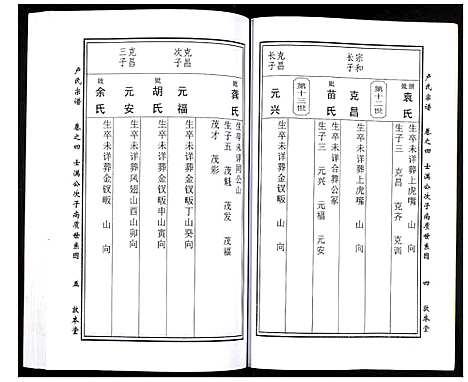 卢氏宗谱
卷之四
士满公次子尚质世系图
四
敦本堂
继妣
袁氏
生卒未详葬上虎嘴 山 向
生子三 克昌 克齐 克训
第十二世
宗和长子
克昌
生卒未详葬上虎嘴 山 向
妣
苗氏
生卒未详合葬公冢
生子三 元兴 元福 元安
第十三世
克昌长子
元兴
生卒未详葬金钗畈 山 向
妣
龚氏
生卒未详同公山
生子五 茂魁 茂发 茂福
茂才 茂彩
克昌次子
元福
生卒未详葬金钗畈丁山癸向
妣
胡氏
生卒未详葬金钗畈申山寅向
克昌三子
元安
生卒未详葬凤翅山酉山卯向
妣
余氏
生卒未详葬金钗畈 山 向
卢氏宗谱
卷之四
士满公次子尚质世系图
五
敦本堂